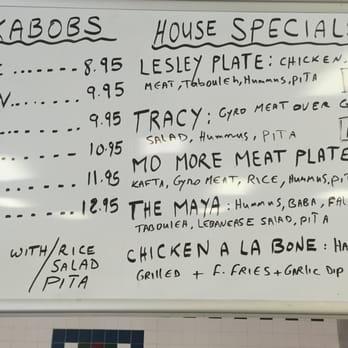 KABOBS
8.95
9.95
9.95
10.95
11.95
12.95
WITH/RICE
SALAD
PITA
HOUSE SPECIALS
LESLEY PLATE: CHICKEN
MEAT, TABOULEH, HUMMUS, PITA
TRACY: GYRO MEAT OVER
SALAD, HUMMUS, PITA
MO MORE MEAT PLATE
KAFTA, GYRO MEAT, RICE, HUMMUS, PIT
THE MAYA: HUMMUS, BABA, FAL
TABOULEH, LEBANEASE SALAD, PITA
CHICKEN A LA BONE: HA
GRILLED + F. FRIES + GARLIC DIP